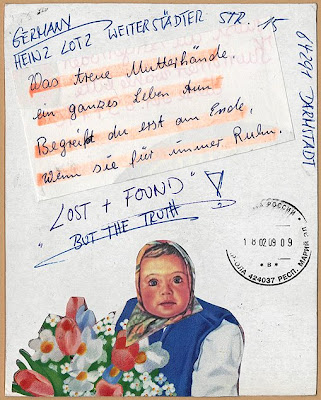 GERMANY
HEINZ LOTZ WEITERSTÄDTER STR. 15
64291 DARMSTADT
Was treue Mutterhände,
ein ganzes Leben tun
Begreifst du erst am Ende,
wenn sie für immer Ruhn.
LOST + FOUND"!
"BUT THE TRUTH
РОССИИ
18 02 09 09
424037 РЕСП. МАРИЙ